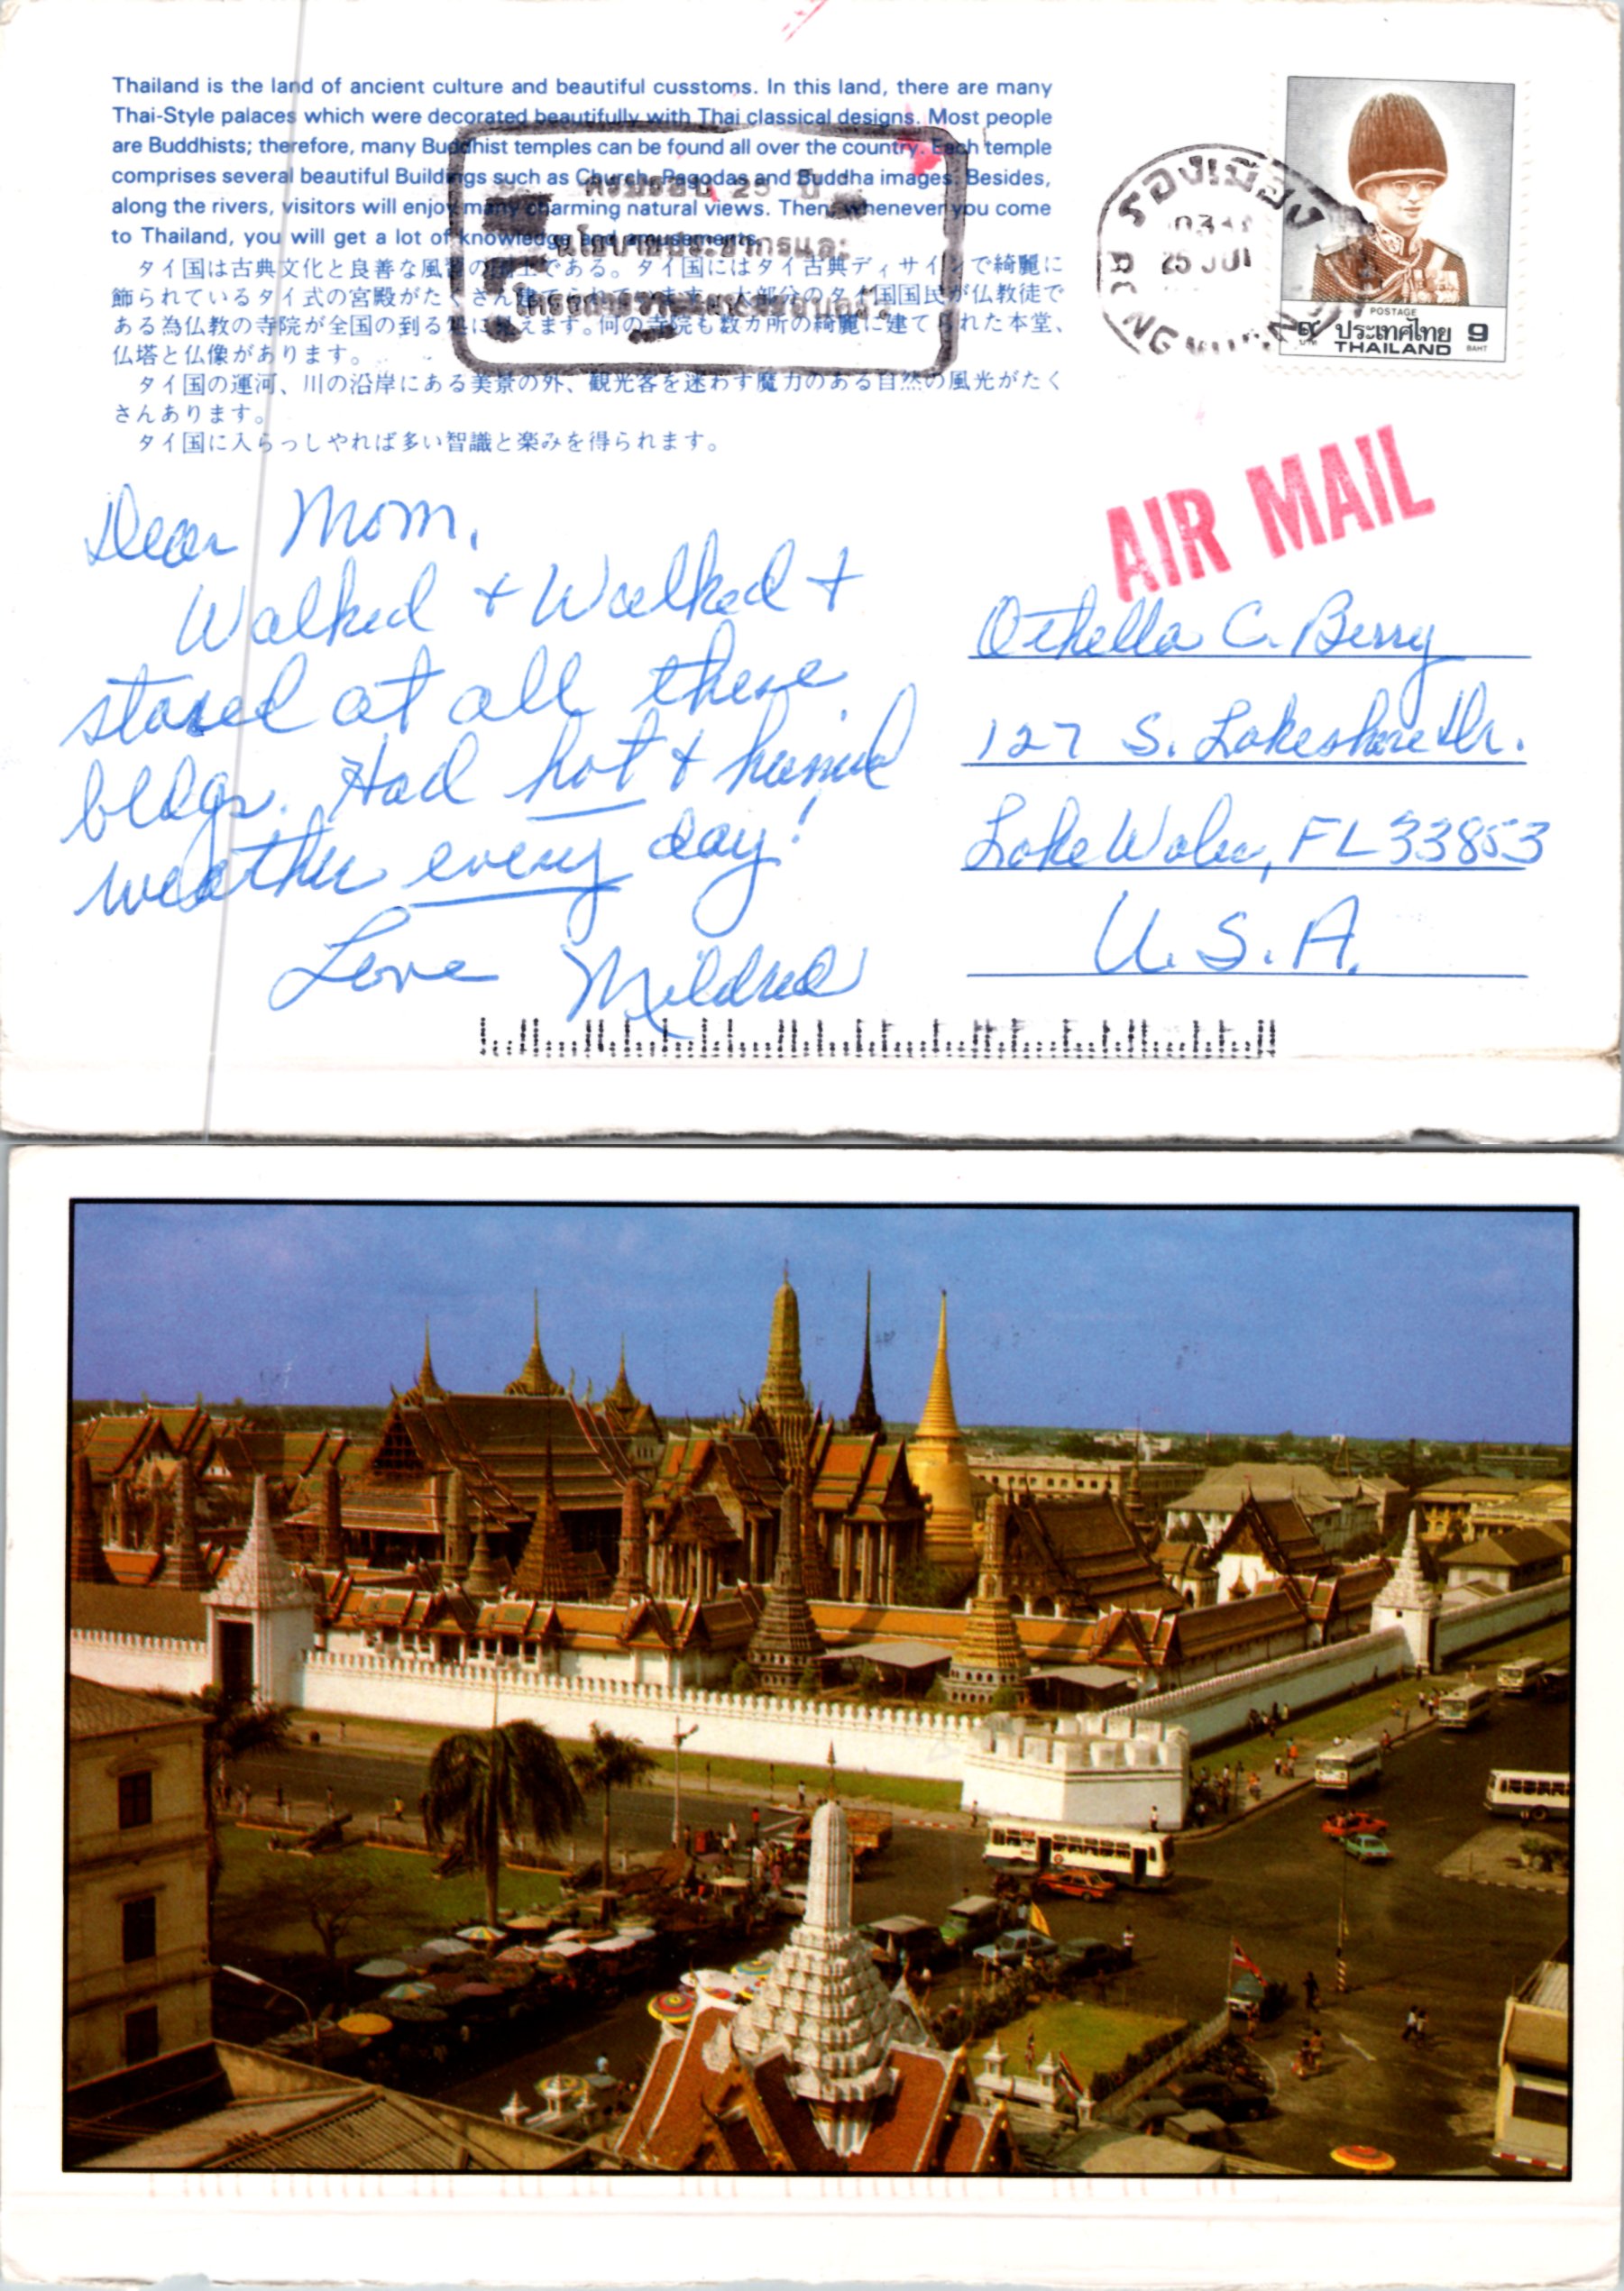 Thailand is the land of ancient culture and beautiful cusstoms. In this land, there are many
Thai-Style palaces which were decorated beautifully with Thai classical designs. Most people
are Buddhists; therefore, many Buddhist temples can be found all over the country. Each temple
comprises several beautiful Buildings such as Church, Pagodas and Buddha images. Besides,
along the rivers, visitors will enjoy many charming natural views. Then, whenever you come
to Thailand, you will get a lot of knowledge and amusements.
タイ国は古典文化と良善な風習の国土である。タイ国にはタイ古典ディサインで綺麗に
飾られているタイ式の宮殿がたくさん建てられています。大部分のタイ国国民が仏教徒で
ある為仏教の寺院が全国の到る処に見えます。何の寺院も数カ所の綺麗に建てられた本堂、
仏塔と仏像があります。
タイ国の運河、川の沿岸にある美景の外、観光客を迷わす魔力のある自然の風光がたく
さんあります。
タイ国に入らっしやれば多い智識と楽みを得られます。
25 ปี
นโยบายประชากรและ
รองเมือง
25 JUL
RONG MUANG
POSTAGE
๙ ประเทศไทย 9
BAHT
THAILAND
AIR MAIL
Dear Mom,
Walked + Walked +
stared at all these
bldgs. Had hot + humid
weather every day!
Love Mildred
Othella C. Berry
127 S. Lakeshore Dr.
Lake Wales, FL 33853
U.S.A.